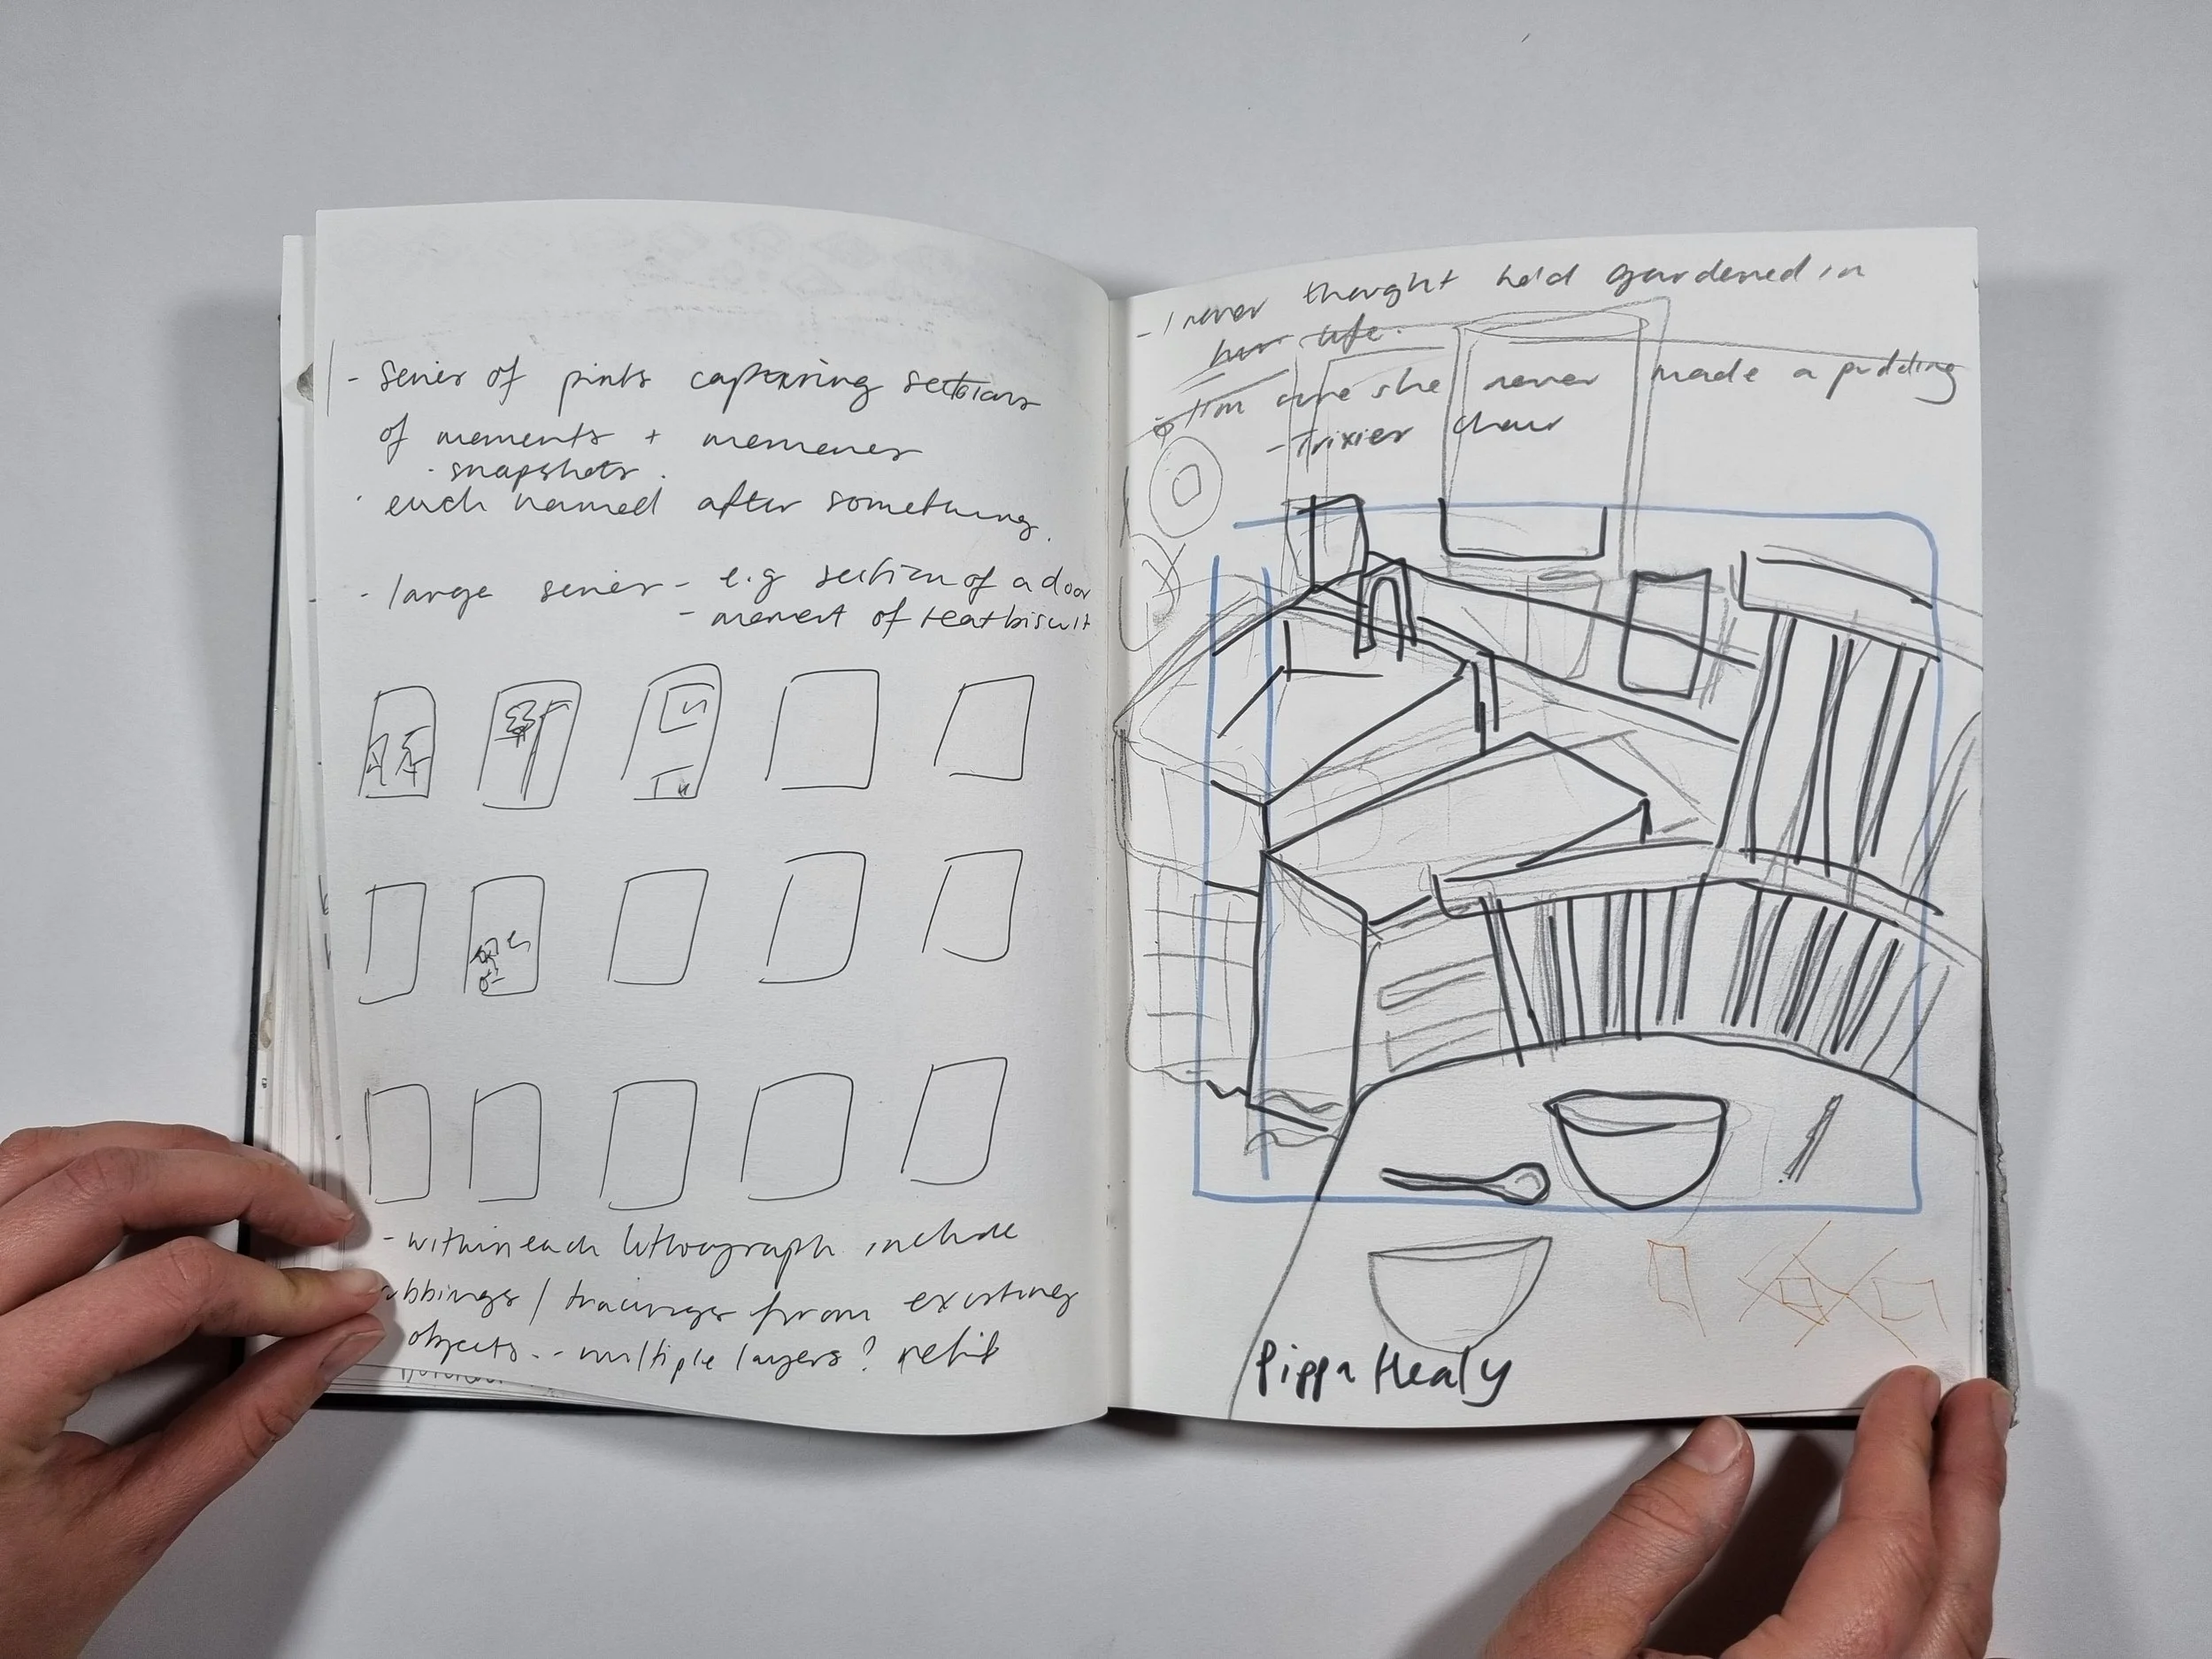 - series of prints capturing sections
of moments + memories
- snapshots.
· each named after something.
- large series - e.g section of a door
- moment of tea+biscuit
- within each lithograph include
rubbings / tracings from existing
objects.. - multiple layers?
- I never thought he'd gardened in
her life.
I'm sure she never made a pudding
- Trixies chair
Pippa Healy